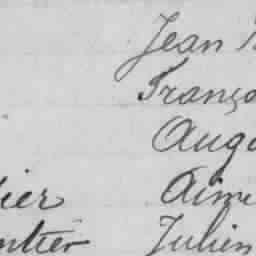 Jean
Franço
Augu
ier Aimé
ntier Julien